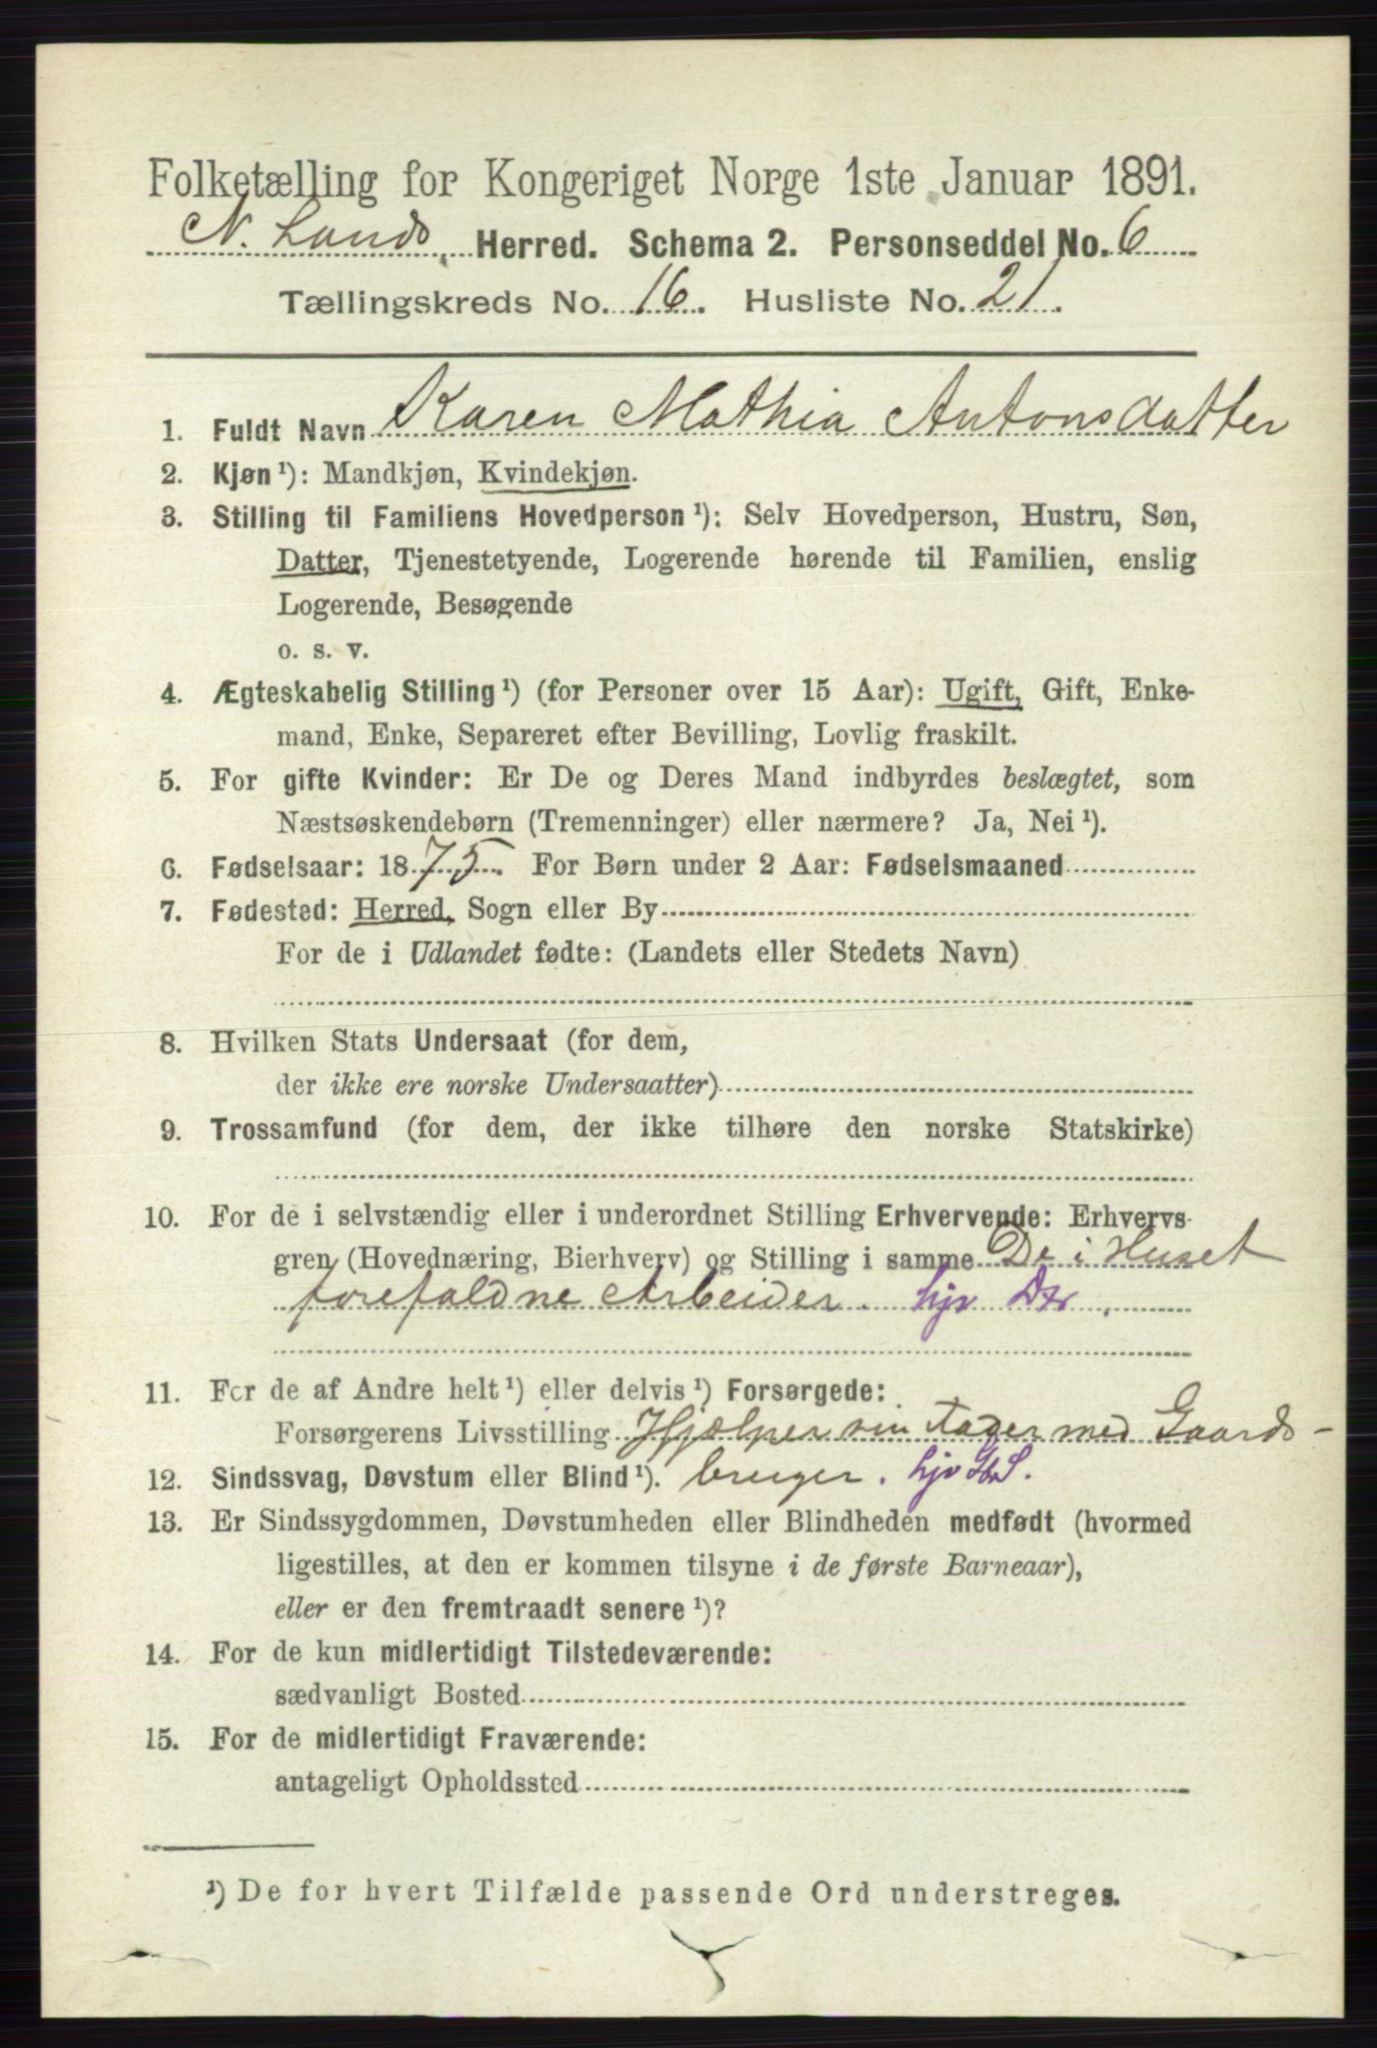 Folketælling for Kongeriget Norge 1ste Januar 1891.
N. Lands Herred. Schema 2. Personseddel No. 6
Tællingskreds No. 16. Husliste No. 21.
1. Fuldt Navn Karen Mathia Antonsdatter
2. Kjøn¹): Mandkjøn, Kvindekjøn.
3. Stilling til Familiens Hovedperson¹): Selv Hovedperson, Hustru, Søn,
Datter, Tjenestetyende, Logerende hørende til Familien, enslig
Logerende, Besøgende
o. s. v.
4. Ægteskabelig Stilling¹) (for Personer over 15 Aar): Ugift, Gift, Enke-
mand, Enke, Separeret efter Bevilling, Lovlig fraskilt.
5. For gifte Kvinder: Er De og Deres Mand indbyrdes beslægtet, som
Næstsøskendebørn (Tremenninger) eller nærmere? Ja, Nei¹).
6. Fødselsaar: 1875. For Børn under 2 Aar: Fødselsmaaned
7. Fødested: Herred, Sogn eller By
For de i Udlandet fødte: (Landets eller Stedets Navn)
8. Hvilken Stats Undersaat (for dem,
der ikke ere norske Undersaatter)
9. Trossamfund (for dem, der ikke tilhøre den norske Statskirke)
10. For de i selvstændig eller i underordnet Stilling Erhvervende: Erhvervs-
gren (Hovednæring, Bierhverv) og Stilling i samme De i Huset
forefaldne Arbeider. hjv Dtr.
11. For de af Andre helt¹) eller delvis¹) Forsørgede:
Forsørgerens Livsstilling Hjælper sin Fader med Gaards-
12. Sindssvag, Døvstum eller Blind¹). bruger. hjv
13. Er Sindssygdommen, Døvstumheden eller Blindheden medfødt (hvormed
ligestilles, at den er kommen tilsyne i de første Barneaar),
eller er den fremtraadt senere¹)?
14. For de kun midlertidigt Tilstedeværende:
sædvanligt Bosted
15. For de midlertidigt Fraværende:
antageligt Opholdssted
¹) De for hvert Tilfælde passende Ord understreges.